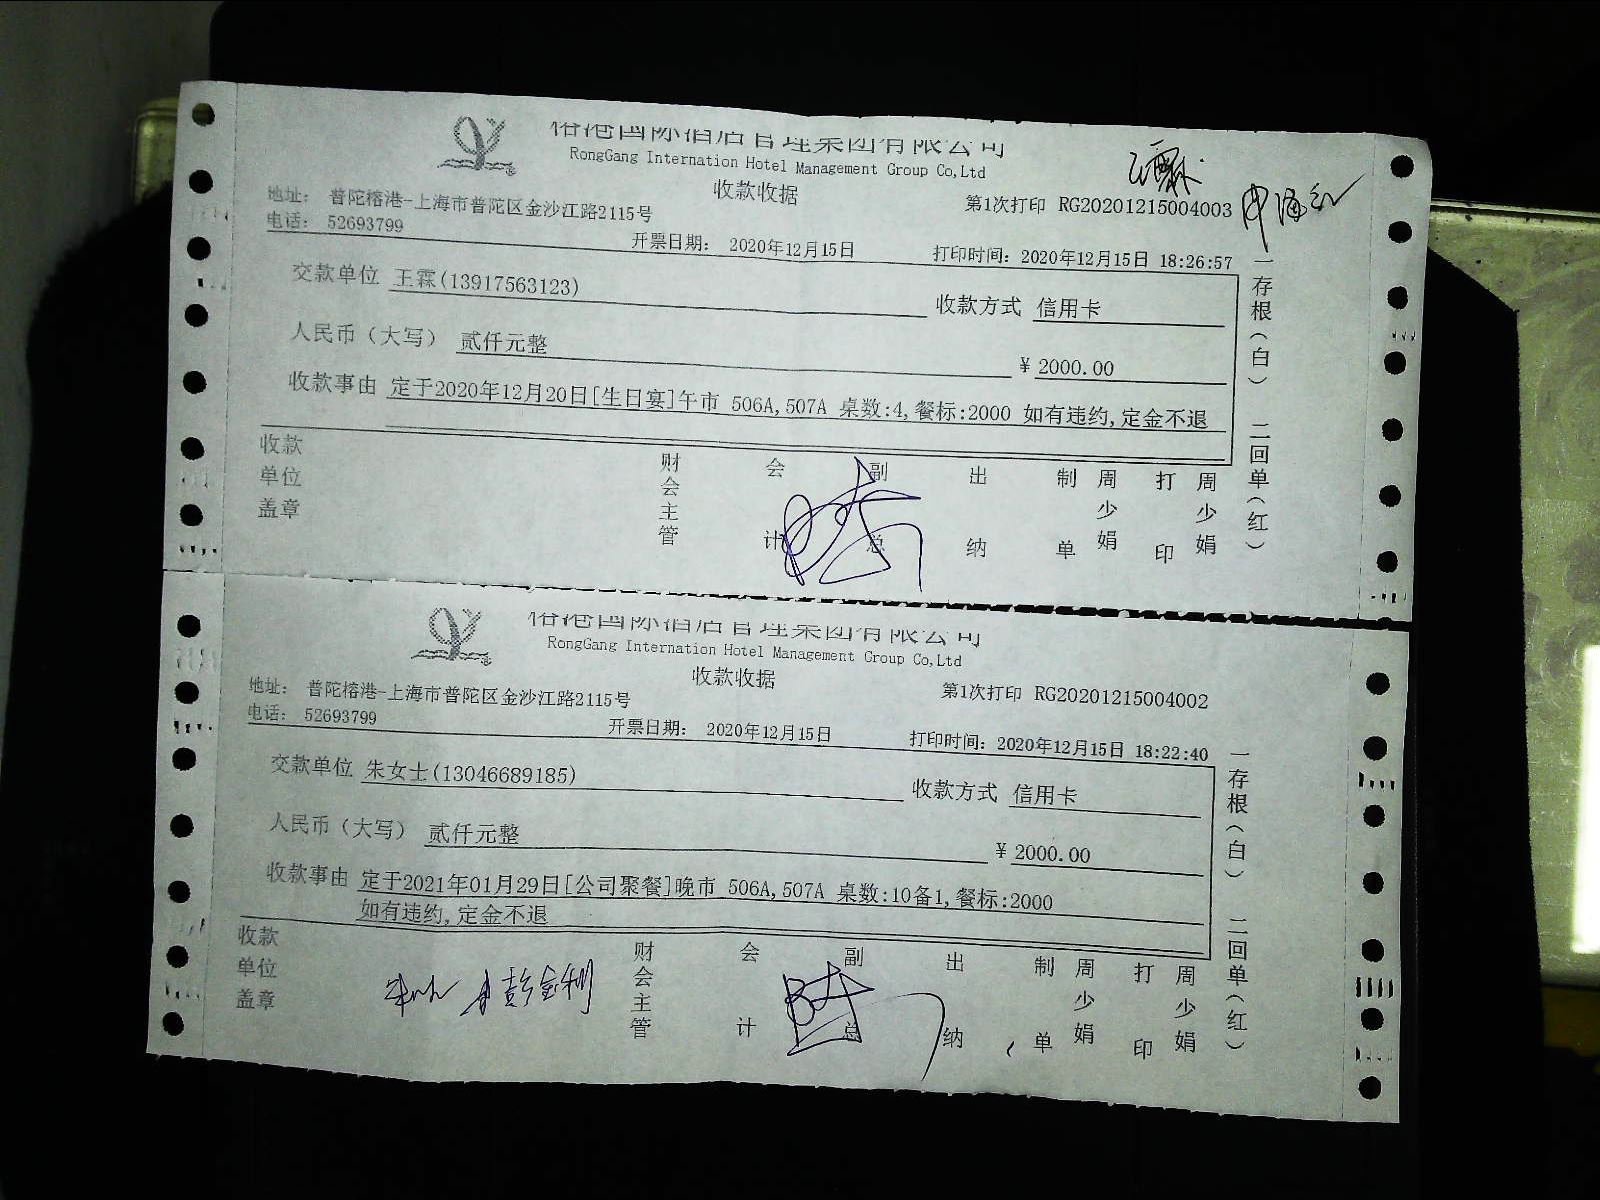 榕港国际酒店管理集团有限公司
RongGang Internation Hotel Management Group Co,Ltd
收款收据
地址： 普陀榕港-上海市普陀区金沙江路2115号
第1次打印 RG20201215004003
电话： 52693799
开票日期： 2020年12月15日
打印时间：2020年12月15日 18:26:57
交款单位 王霖(13917563123)
收款方式 信用卡
人民币（大写） 贰仟元整
￥2000.00
收款事由 定于2020年12月20日[生日宴]午市 506A,507A 桌数:4,餐标:2000 如有违约,定金不退
一存根（白） 二回单（红）
收款单位盖章
财会主管
会计
副总
出纳
制单 周少娟
打印 周少娟
榕港国际酒店管理集团有限公司
RongGang Internation Hotel Management Group Co,Ltd
收款收据
地址： 普陀榕港-上海市普陀区金沙江路2115号
第1次打印 RG20201215004002
电话： 52693799
开票日期： 2020年12月15日
打印时间：2020年12月15日 18:22:40
交款单位 朱女士(13046689185)
收款方式 信用卡
人民币（大写） 贰仟元整
￥2000.00
收款事由 定于2021年01月29日[公司聚餐]晚市 506A,507A 桌数:10备1,餐标:2000
如有违约,定金不退
一存根（白） 二回单（红）
收款单位盖章
财会主管
会计
副总
出纳
制单 周少娟
打印 周少娟